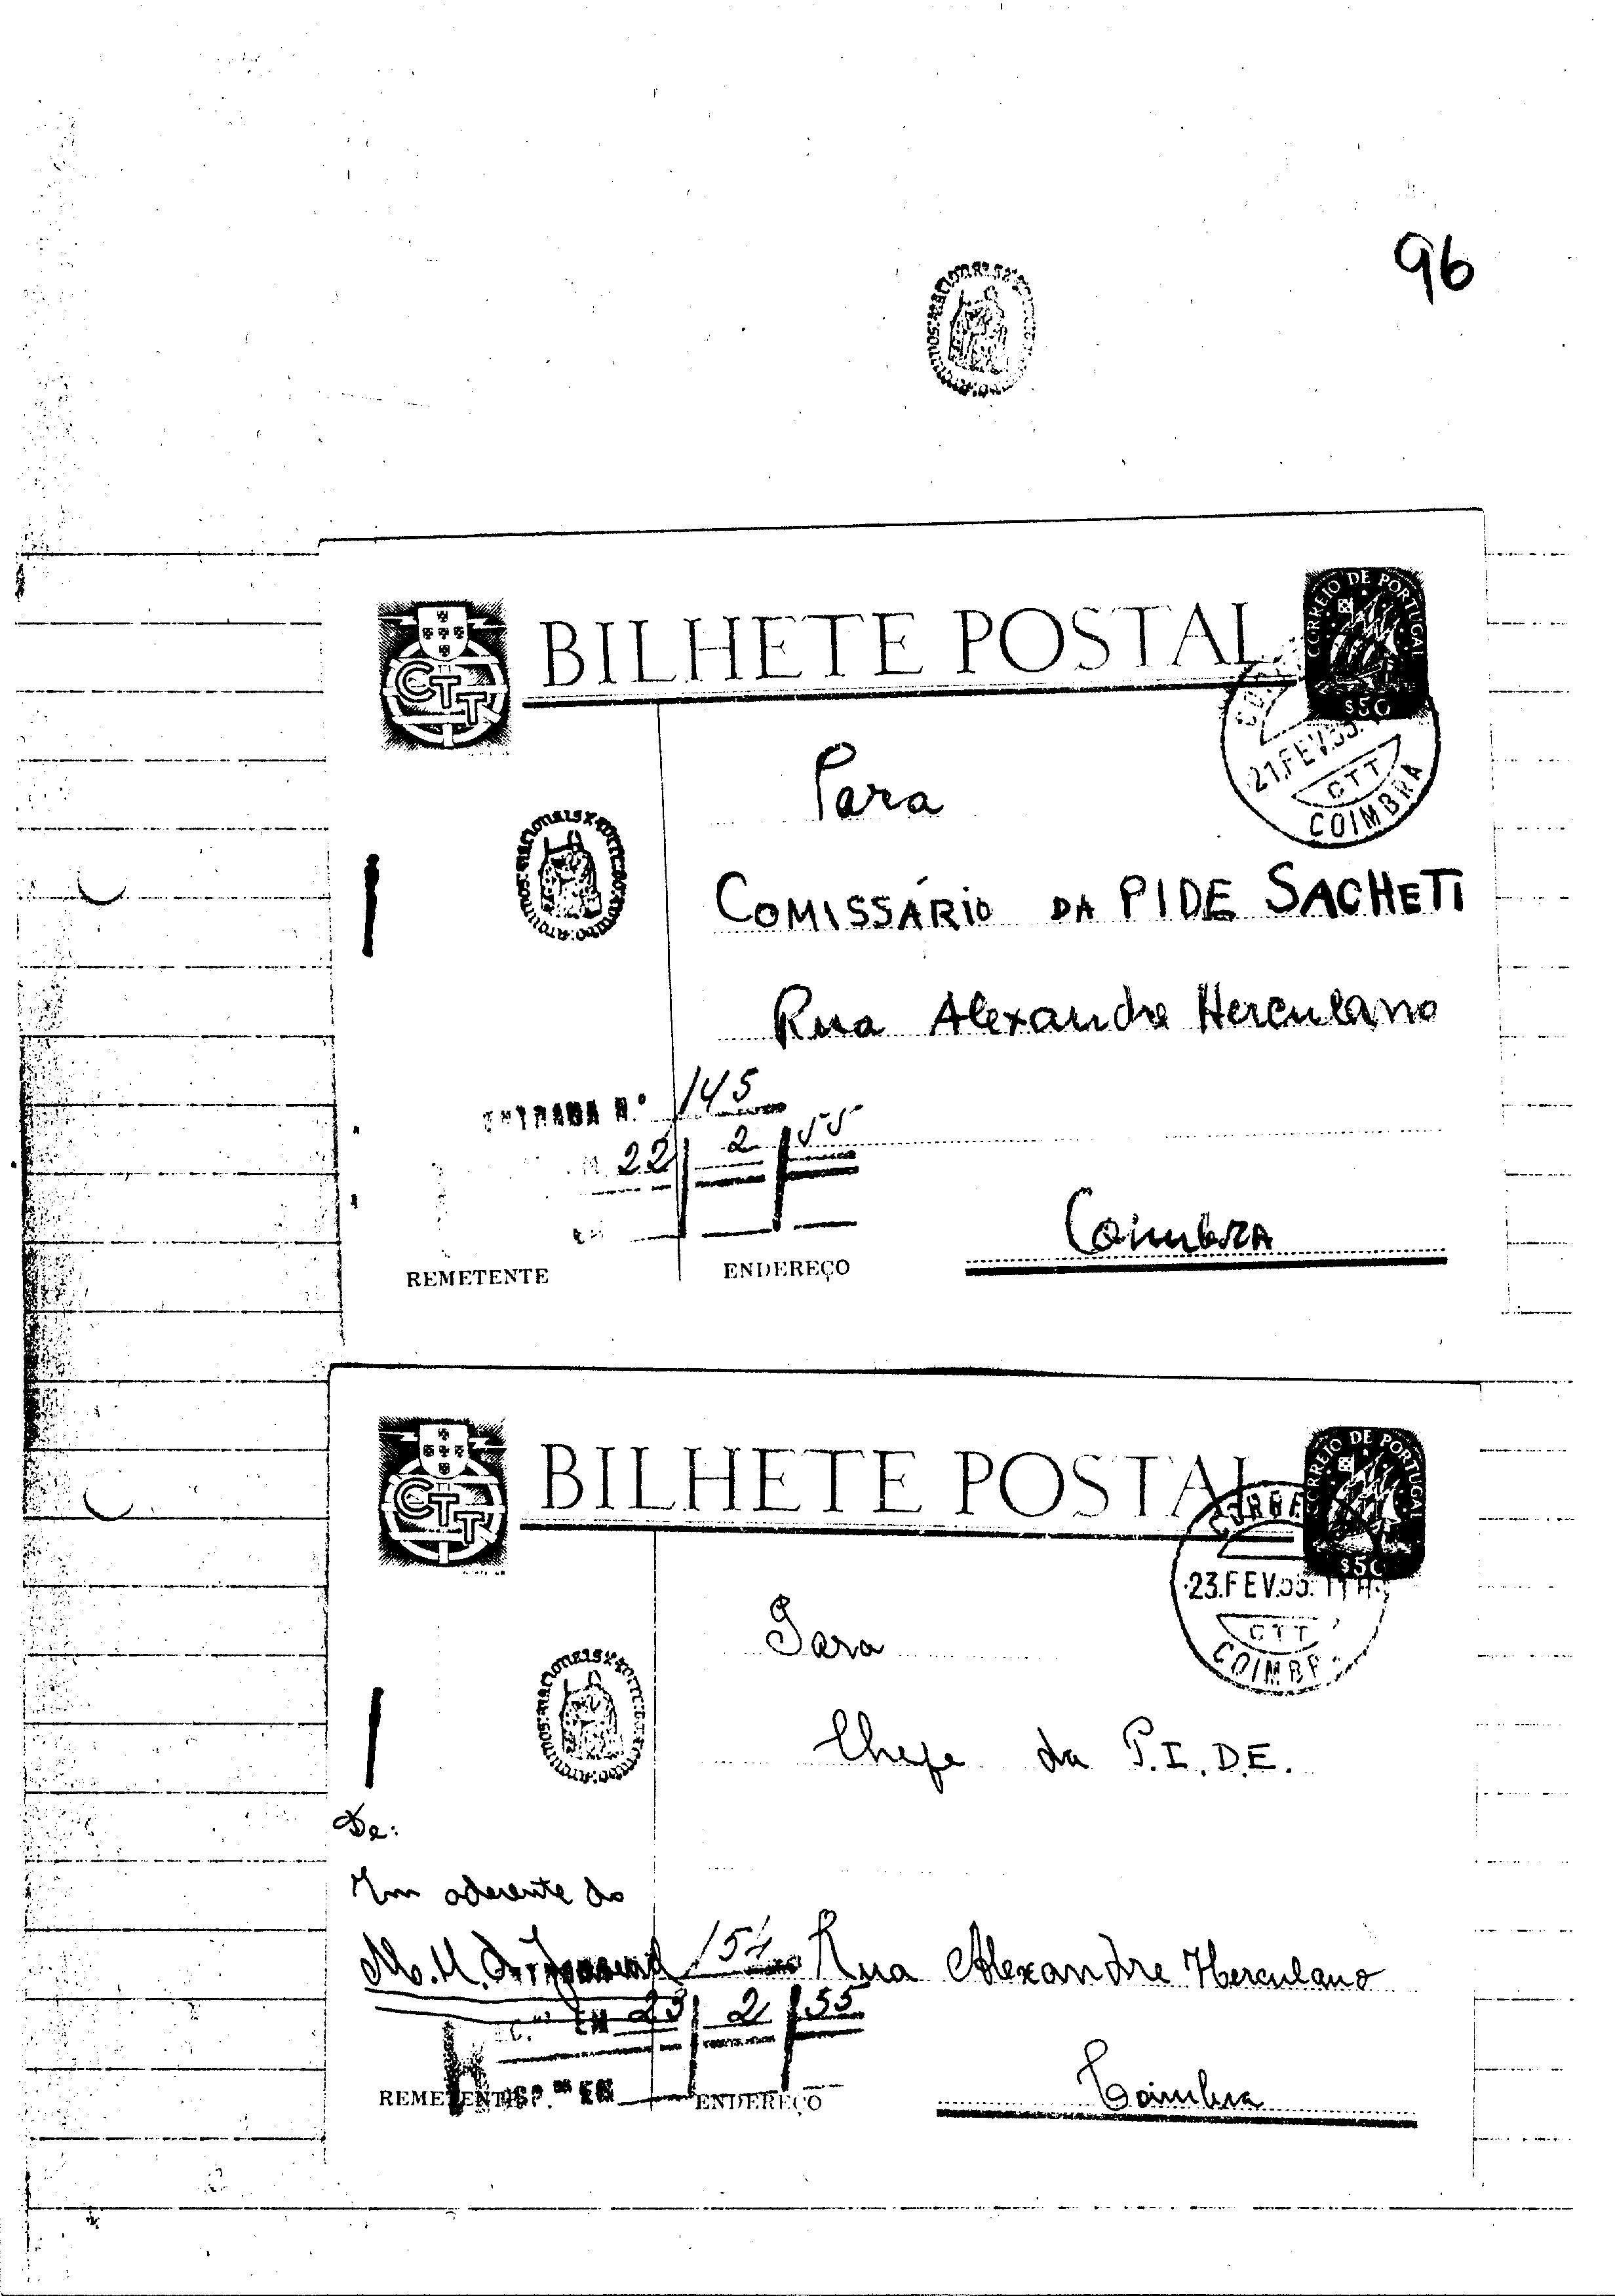 96
BILHETE POSTAL
CTT
CORREIO DE PORTUGAL
$50
21.FEV.55
CTT
COIMBRA
Para
COMISSÁRIO DA PIDE SACHETI
Rua Alexandre Herculano
ENTRADA N.º 145
22 2 55
Coimbra
REMETENTE
ENDEREÇO
BILHETE POSTAL
CTT
CORREIO DE PORTUGAL
$50
23.FEV.55.
CTT
COIMBR
Para
Chefe da P.I.D.E.
De:
Um aderente do
Rua Alexandre Herculano
EM 23 2 55
Coimbra
REMETENTE
ENDEREÇO